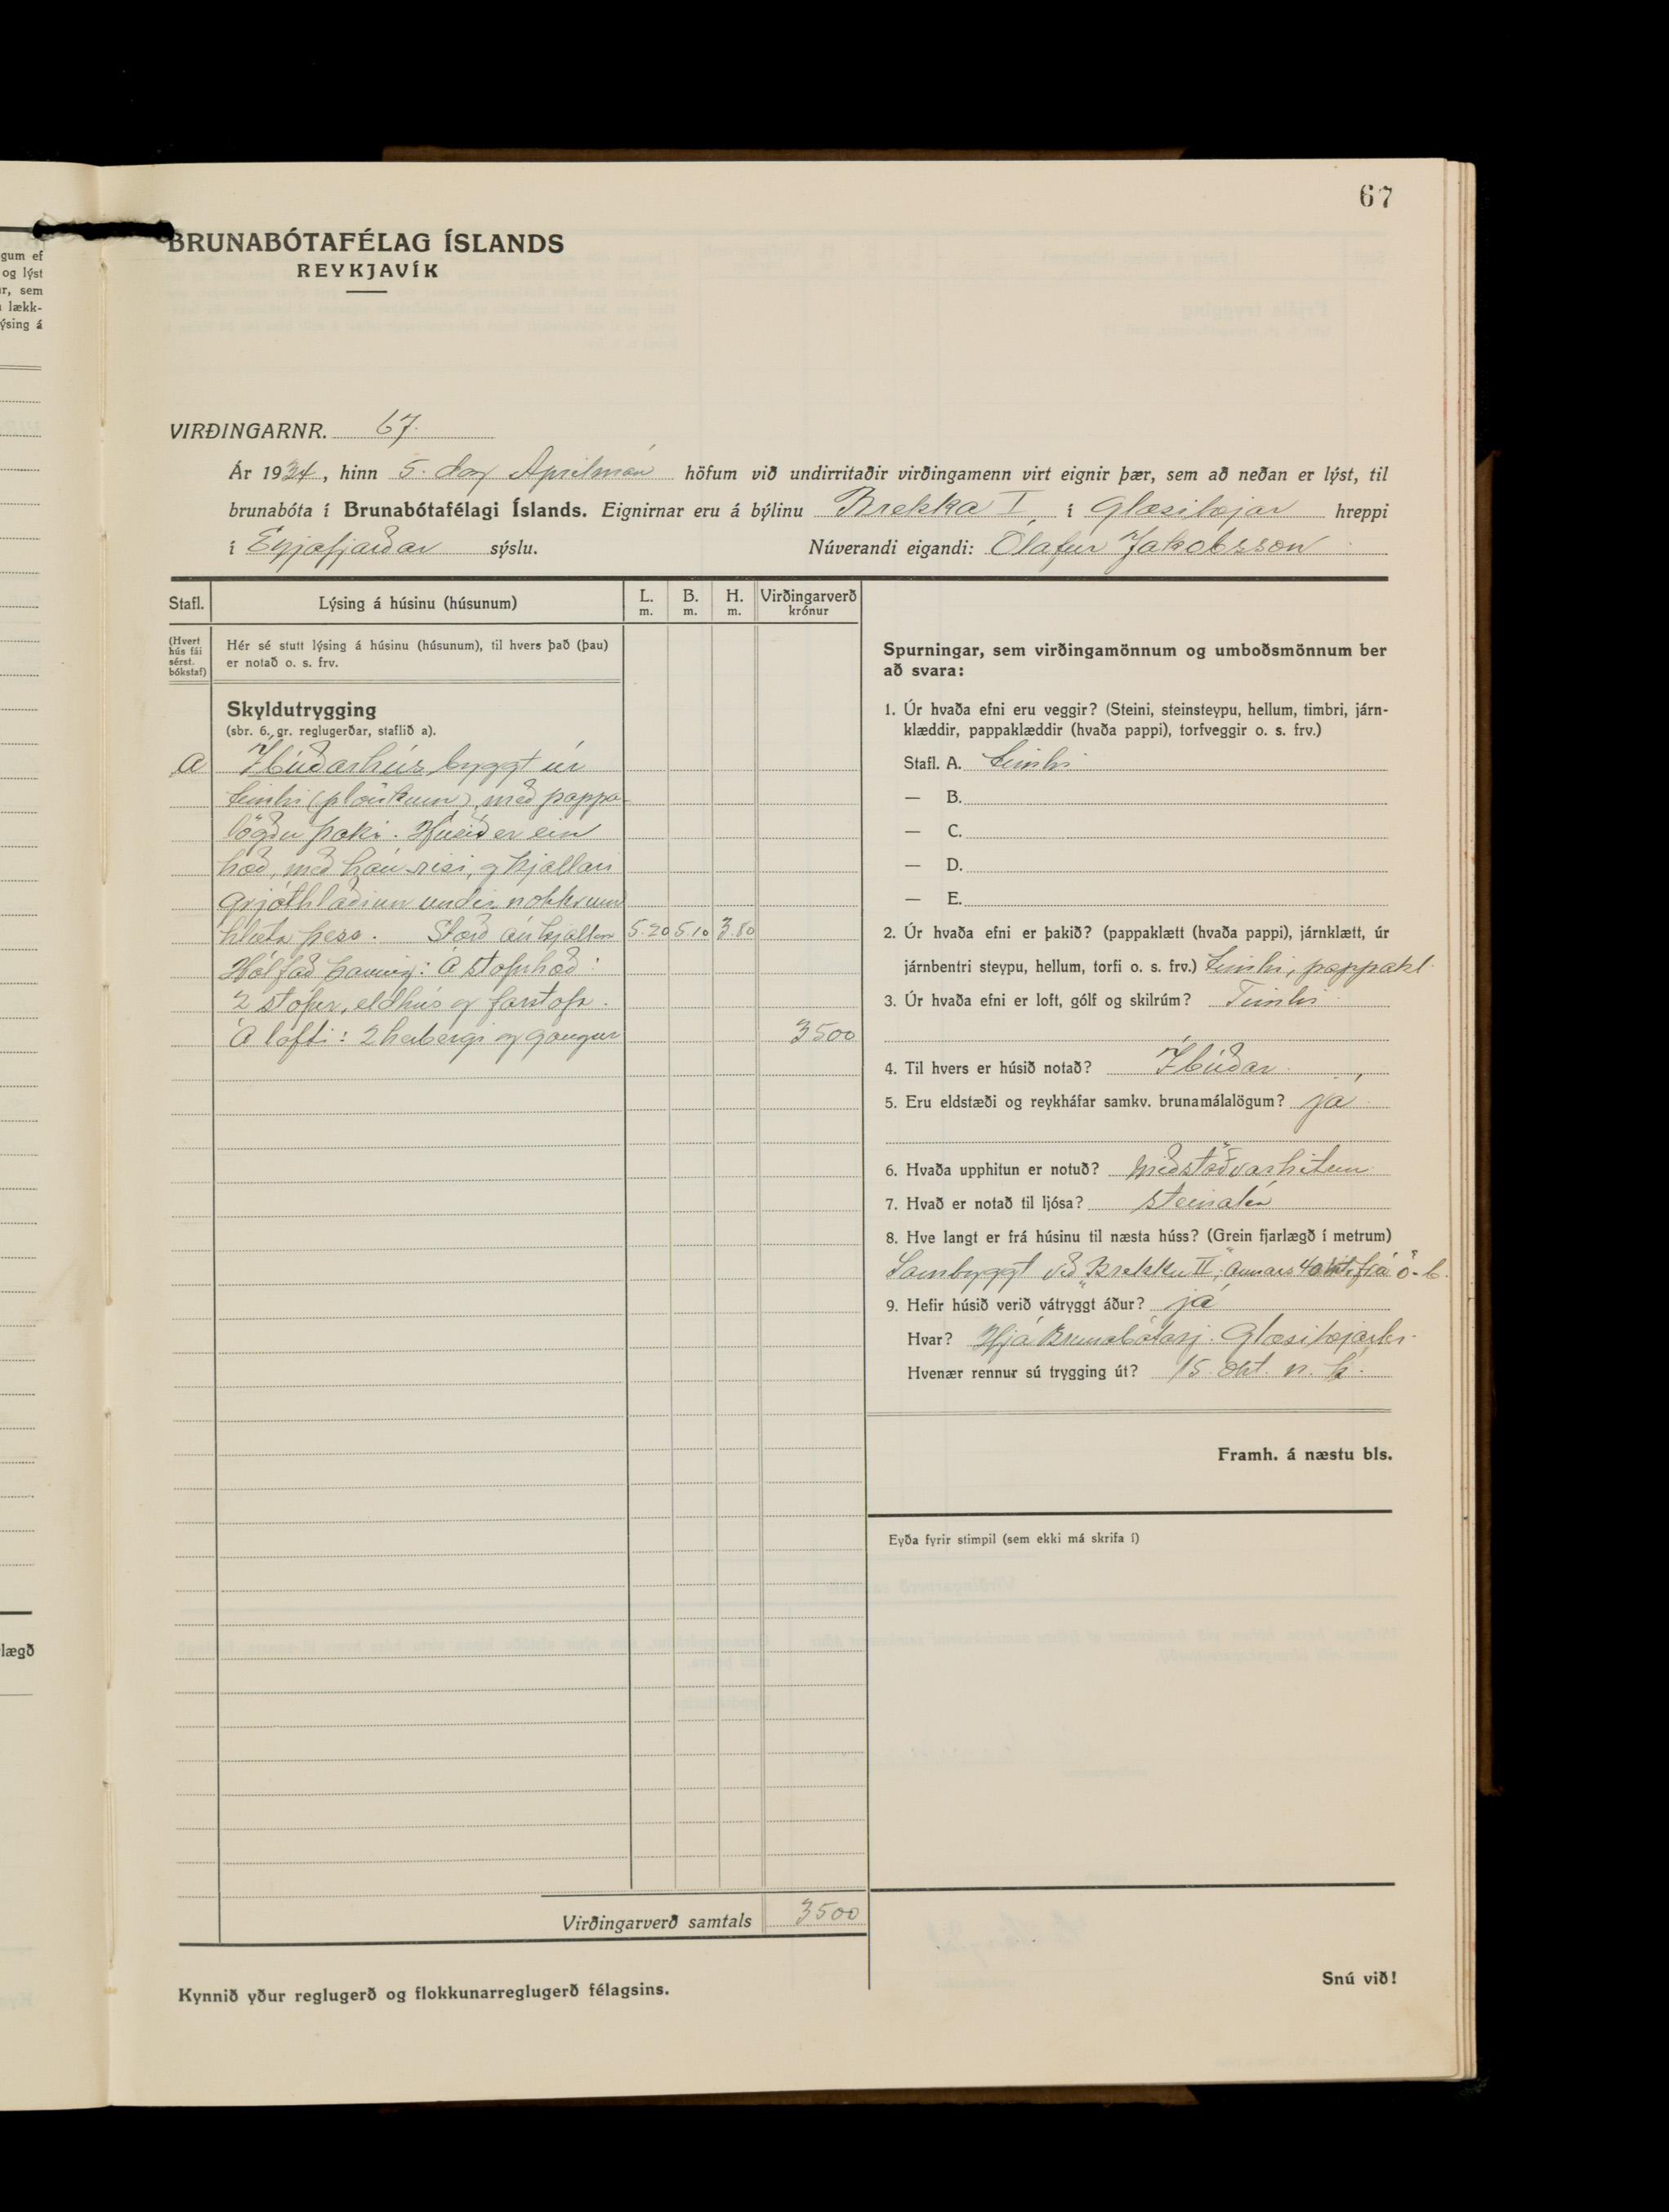 gum ef
og lýst
ır, sem
lækk-
ýsing á
lægð
67
BRUNABÓTAFÉLAG ÍSLANDS
REYKJAVÍK
VIRÐINGARNR. 67.
Ár 1934, hinn 5. dag Aprílmán höfum við undirritaðir virðingamenn virt eignir þær, sem að neðan er lýst, til
brunabóta í Brunabótafélagi Íslands. Eignirnar eru á býlinu Brekka I, í Glæsibæjar hreppi
í Eyjafjarðar sýslu. Núverandi eigandi: Ólafur Jakobsson
Stafl. Lýsing á húsinu (húsunum) L. m. B. m. H. m. Virðingarverð krónur
(Hvert hús fái sérst. bókstaf)
Hér sé stutt lýsing á húsinu (húsunum), til hvers það (þau)
er notað o. s. frv.
Skyldutrygging
(sbr. 6. gr. reglugerðar, staflið a).
A Íbúðarhús byggt úr
timbri (plönkum) með pappa-
lögðu þaki. Húsið er ein
hæð, með háu risi, og kjallari
grjóthlaðinn undir nokkrum
hluta þess. Stærð án kjallara 5.20 5.10 3.80
Hólfað þannig: Á stofuhæð:
2 stofur, eldhús og forstofa.
Á lofti: 2 herbergi og gangur 3500
Virðingarverð samtals 3500
Kynnið yður reglugerð og flokkunarreglugerð félagsins.
Spurningar, sem virðingamönnum og umboðsmönnum ber
að svara:
1. Úr hvaða efni eru veggir? (Steini, steinsteypu, hellum, timbri, járn-
klæddir, pappaklæddir (hvaða pappi), torfveggir o. s. frv.)
Stafl. A. timbri
— B.
— C.
— D.
— E.
2. Úr hvaða efni er þakið? (pappaklætt (hvaða pappi), járnklætt, úr
járnbentri steypu, hellum, torfi o. s. frv.) timbri, pappakl.
3. Úr hvaða efni er loft, gólf og skilrúm? Timbri
4. Til hvers er húsið notað? Íbúðar
5. Eru eldstæði og reykháfar samkv. brunamálalögum? já
6. Hvaða upphitun er notuð? miðstöðvarhitun
7. Hvað er notað til ljósa? steinolía
8. Hve langt er frá húsinu til næsta húss? (Grein fjarlægð í metrum)
Sambyggt við „Brekku II", annars 40 mt. frá ö. b.
9. Hefir húsið verið vátryggt áður? já
Hvar? Hjá Brunabótasj. Glæsibæjarhr.
Hvenær rennur sú trygging út? 15. okt. n. k.
Framh. á næstu bls.
Eyða fyrir stimpil (sem ekki má skrifa í)
Snú við!